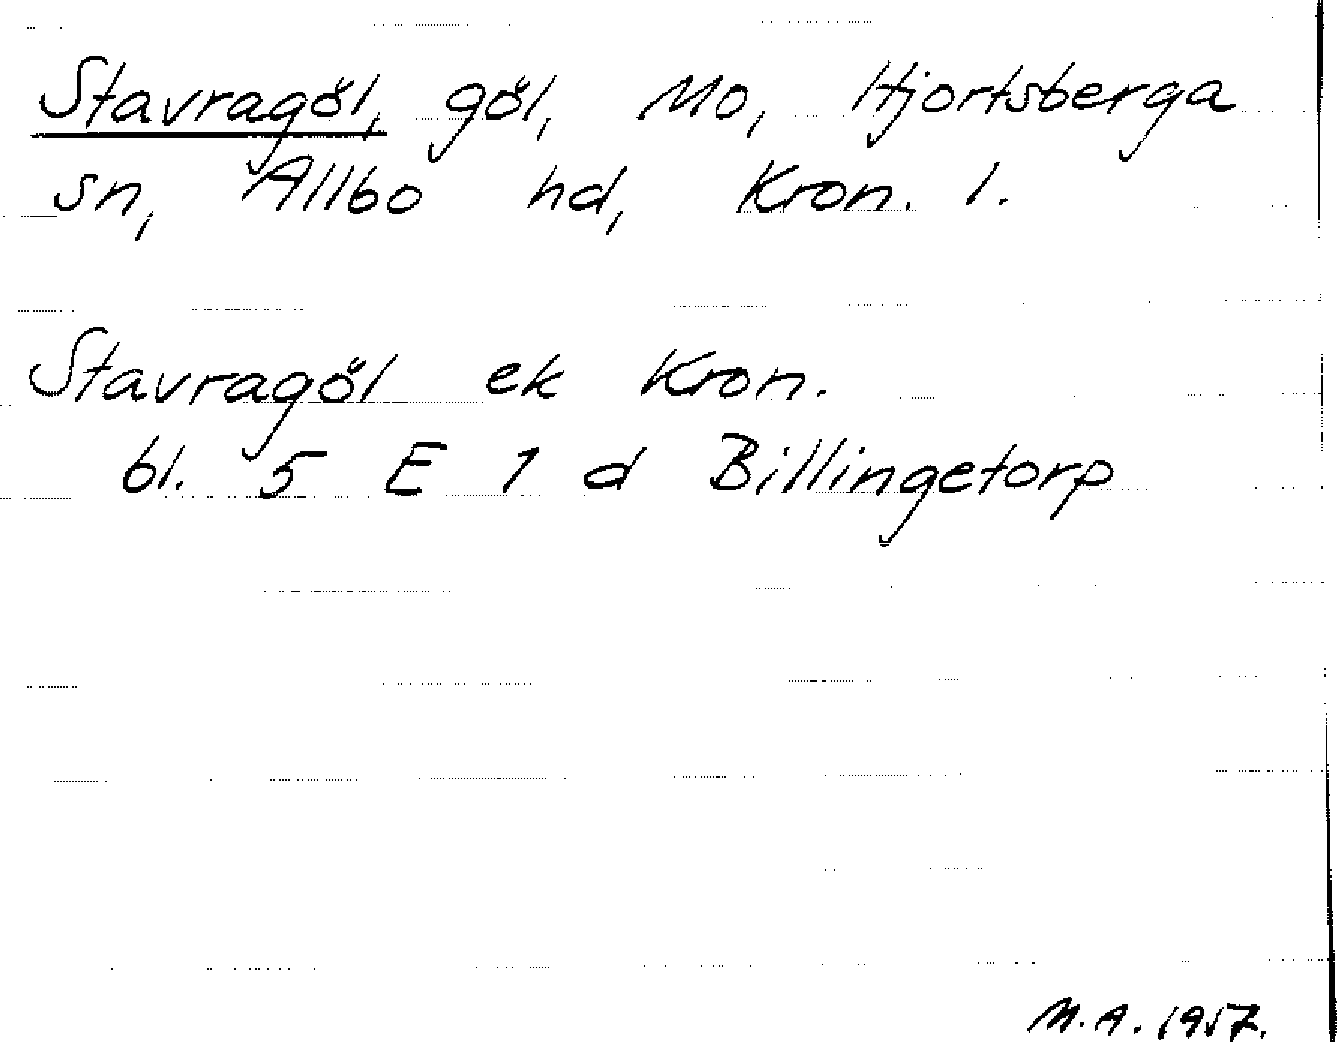 Stavragöl, göl, Mo, Hjortsberga
sn, Allbo hd, Kron. l.
Stavragöl ek Kron.
bl. 5 E 1 d Billingetorp
M.A. 1957.